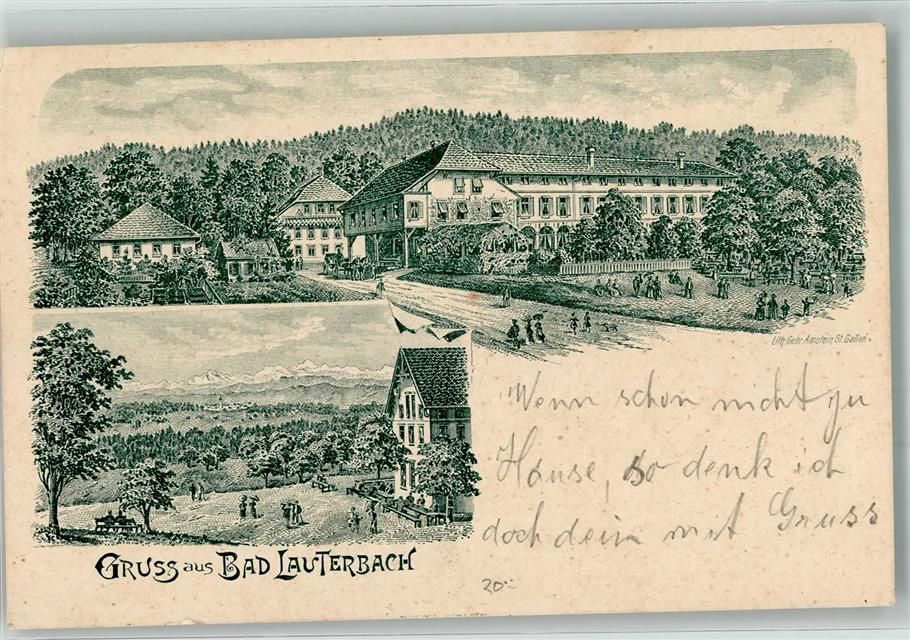 Lith. Gebr. Amstein, St. Gallen.
Wenn schon nicht zu
Hause, so denk ich
doch dein mit Gruss
GRUSS aus BAD LAUTERBACH
20.-